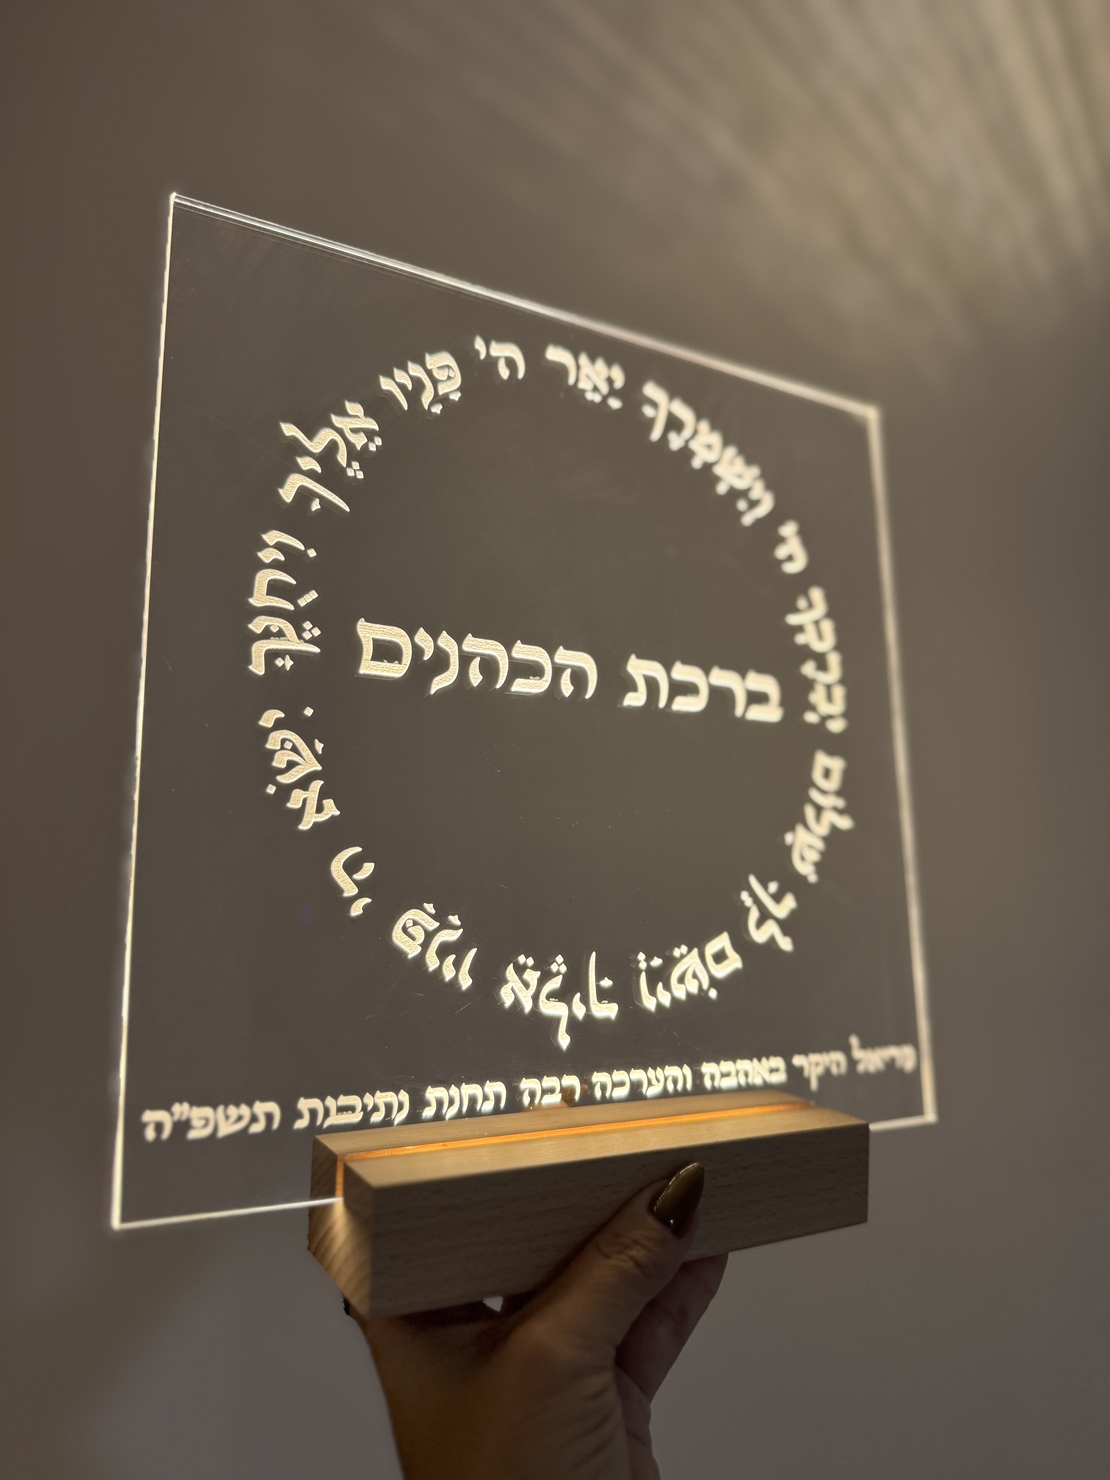 ברכת הכהנים
יְבָרֶכְךָ ה' וְיִשְׁמְרֶךָ יָאֵר ה' פָּנָיו אֵלֶיךָ וִיחֻנֶּךָּ יִשָּׂא ה' פָּנָיו אֵלֶיךָ וְיָשֵׂם לְךָ שָׁלוֹם
מריאל היקר באהבה והערכה רבה תחנת נתיבות תשפ"ה